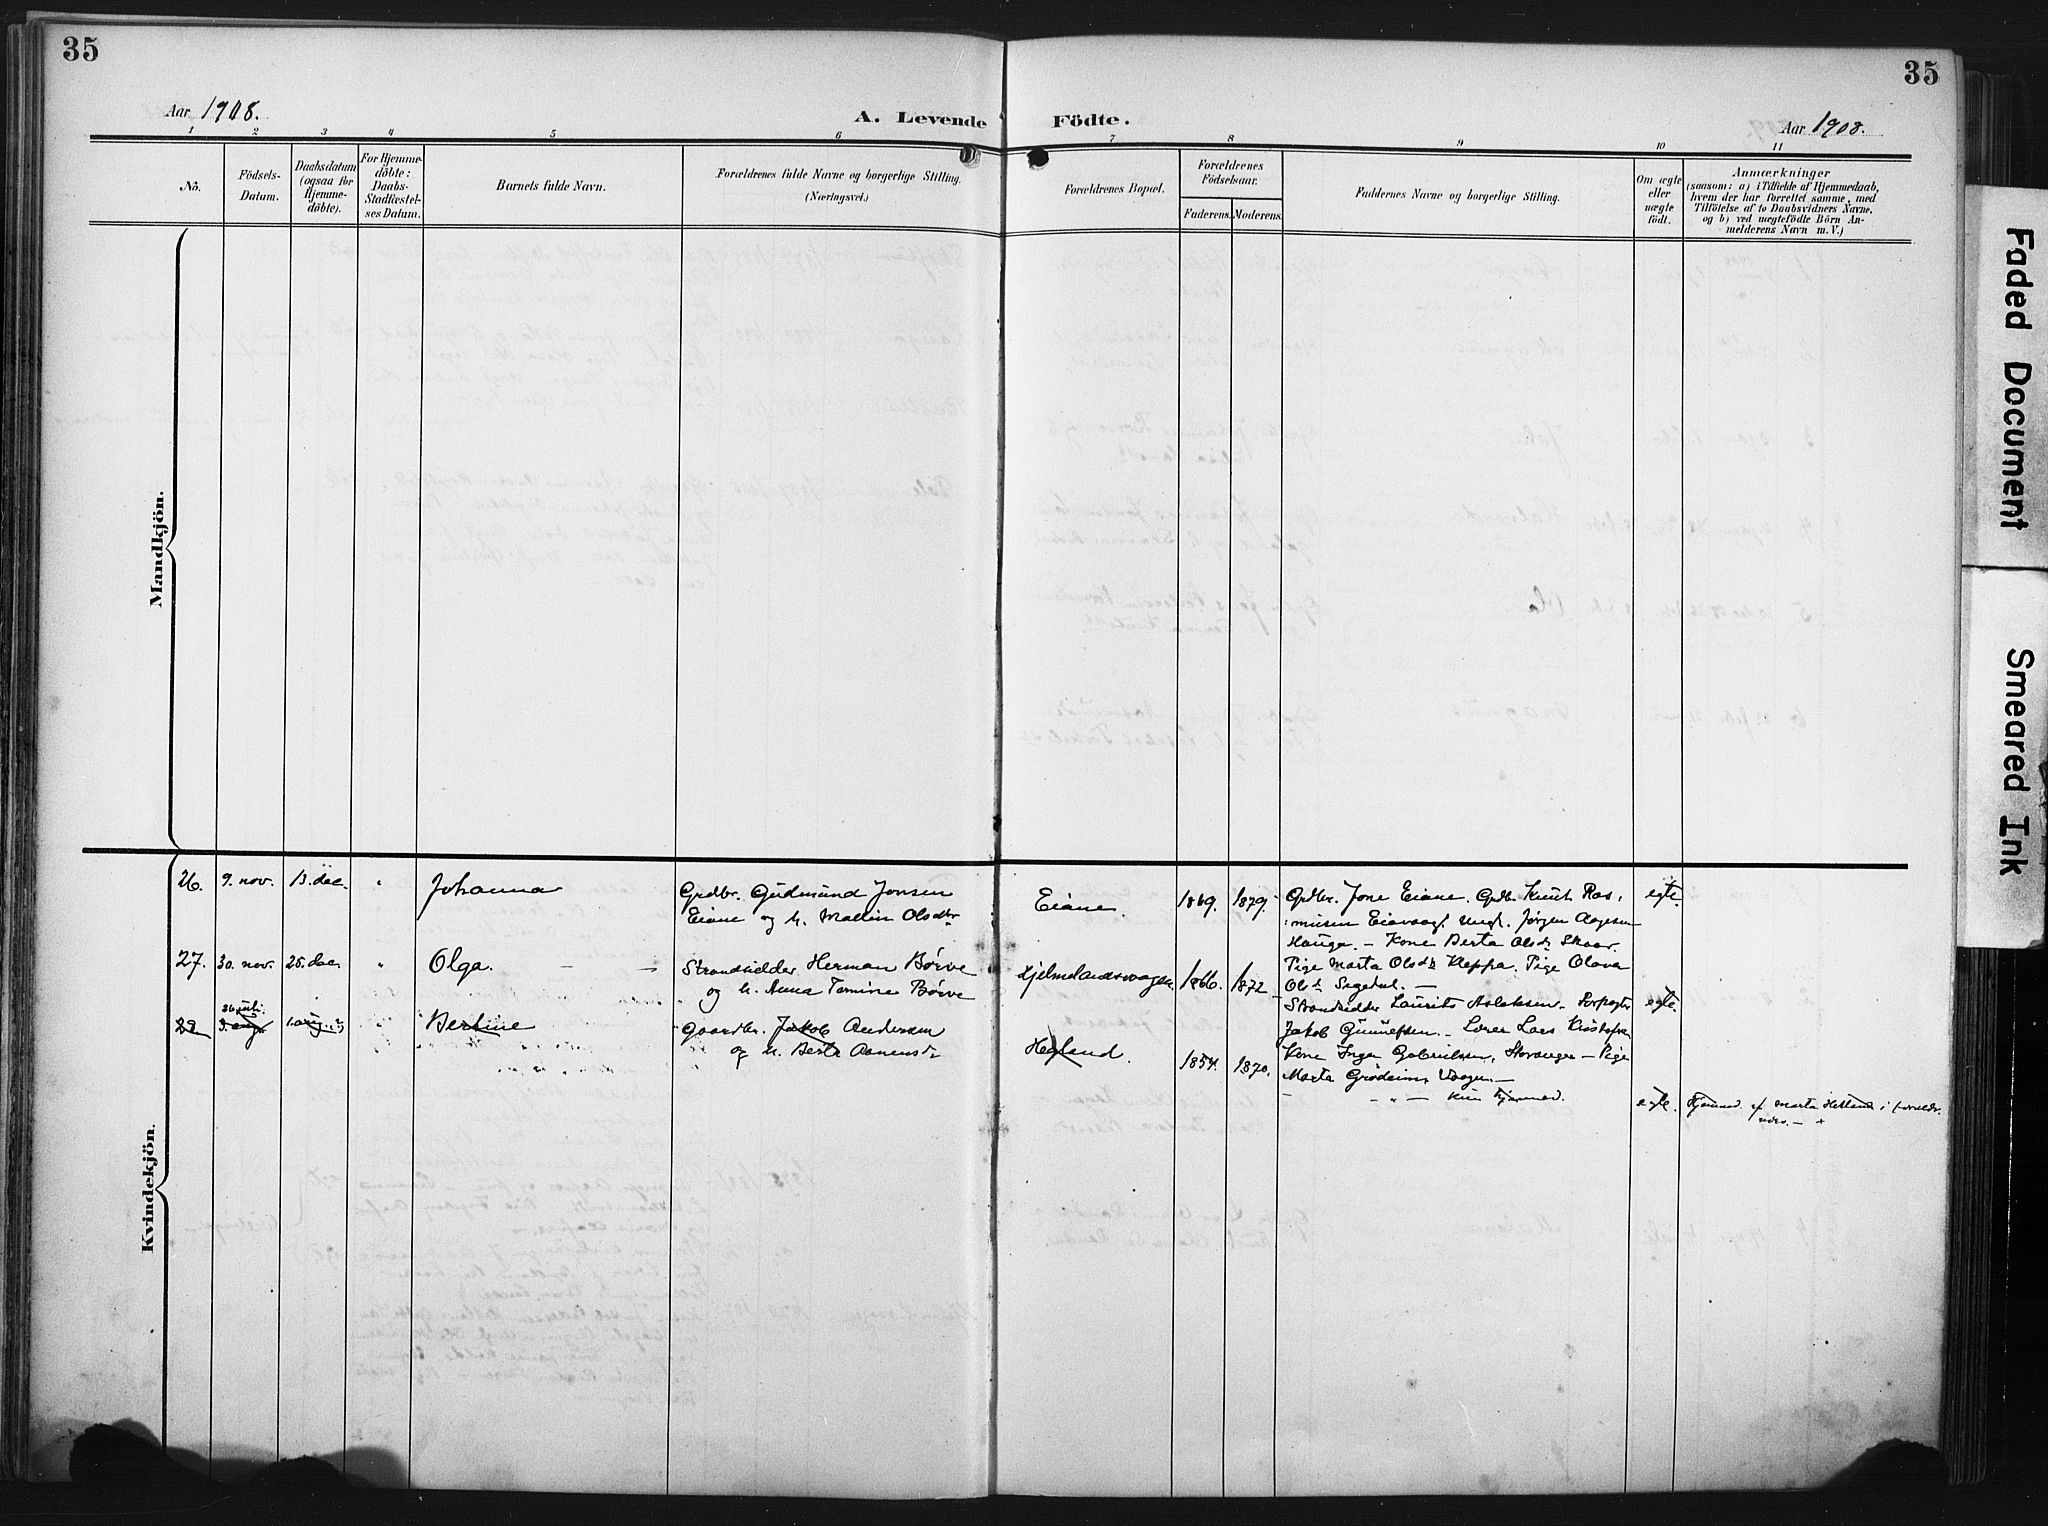 35
35
Aar 1908.
A. Levende Födte.
Aar 1908.
1 2 3 4 5 6 7 8 9 10 11
Nö.
Födsels-
Datum.
Daabsdatum
(ogsaa for
Hjemme-
döbte).
For Hjemme-
döbte:
Daabs-
Stadfæstel-
ses Datum.
Barnets fulde Navn.
Forældrenes fulde Navne og borgerlige Stilling.
(Næringsvei.)
Forældrenes Bopæl.
Forældrenes
Födselsaar.
Faderens.
Moderens.
Faddernes Navne og borgerlige Stilling.
Om ægte
eller
uægte
födt.
Anmærkninger
(saasom: a) i Tilfælde af Hjemmedaab,
hvem der har forrettet samme, med
Tilföielse af to Daabsvidners Navne,
og b) ved uægtefödte Börn An-
melderens Navn m. V.)
Mandkjön.
Kvindekjön.
26. 9. nov. 13. dec. " Johanna
Grdbr. Gudmund Jonsen
Eiane og h. Mallin Olsdtr
Eiane. 1869. 1879.
Grdbr. Jone Eiane. Grdb. Knut Ras:
:musen Eiavaag. Ungk. Jørgen Aagesen
Hauge. – Kone Berta Olsdt Skaar.
Pige Marta Olsdt Kleppa. Pige Olava
Olsdt Segedal. –
egte.
27. 30. nov. 26. dec. " Olga. – –
Strandsidder Herman Börve
og h. Anna Tomine Börve
Hjelmelandsvaagen. 1866. 1872
Strandsidder Laurits Aslaksen.
Jakob Gunnersen. – Lærer Lars
Kone Inga Gabrielsen, Stavanger – Pige
Marta Grödeim, Vaagen. –
egte.
28 26 juli 3. aug. " Bertine
Gaardbr. Jakob Andersen
og h. Berte Aanensdtr
Hegland. 1854. 1870.
– " – Kun hjemmed.
egte.
Hjemmed. af Marta Hetland i forældr.
nærv. –
Faded Document
Smeared Ink